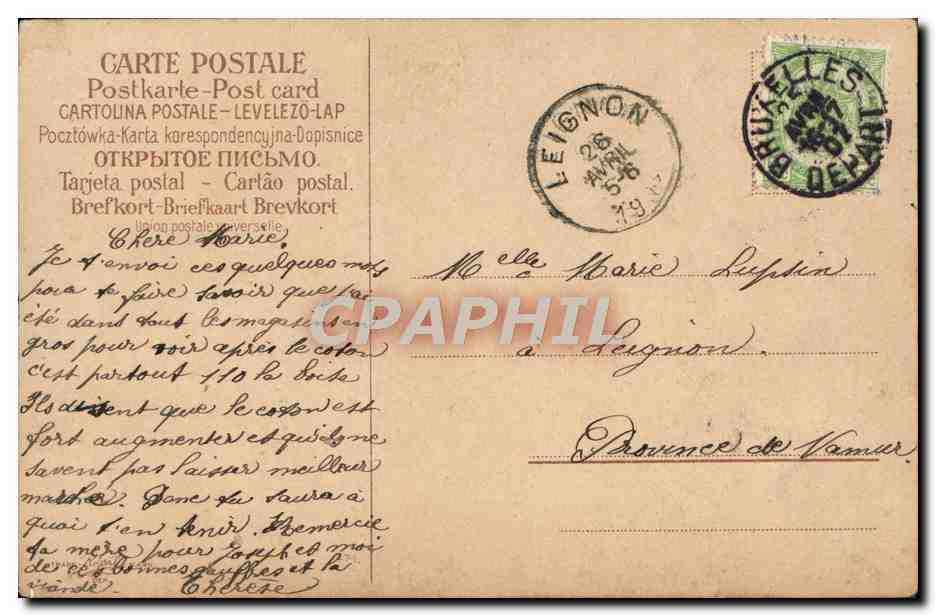 CARTE POSTALE
Postkarte-Post card
CARTOLINA POSTALE-LEVELEZŐ-LAP
Pocztówka-Karta korespondencyjna-Dopisnice
ОТКРЫТОЕ ПИСЬМО.
Tarjeta postal - Cartão postal.
Brefkort-Briefkaart Brevkort
Union postale universelle.
Chère Marie.
Je t'envoi ces quelques mots
pour te faire savoir que j'ai
été dans tout les magasins en
gros pour voir après le coton
c'est partout 110 la boite
Ils disent que le coton est
fort augmenter et qu'ils ne
savent pas laisser meilleur
marché. Donc tu saura à
quoi t'en tenir. Remercie
ta mère pour Joseph et moi
de ces bonnes gauffes et la
viande. Therese
LEIGNON
26
AVRIL
5-6
19
BRUXELLES
AVRIL
07
DEPART
Melle Marie Lupsin
à Leignon.
Province de Namur.
CPAPHIL